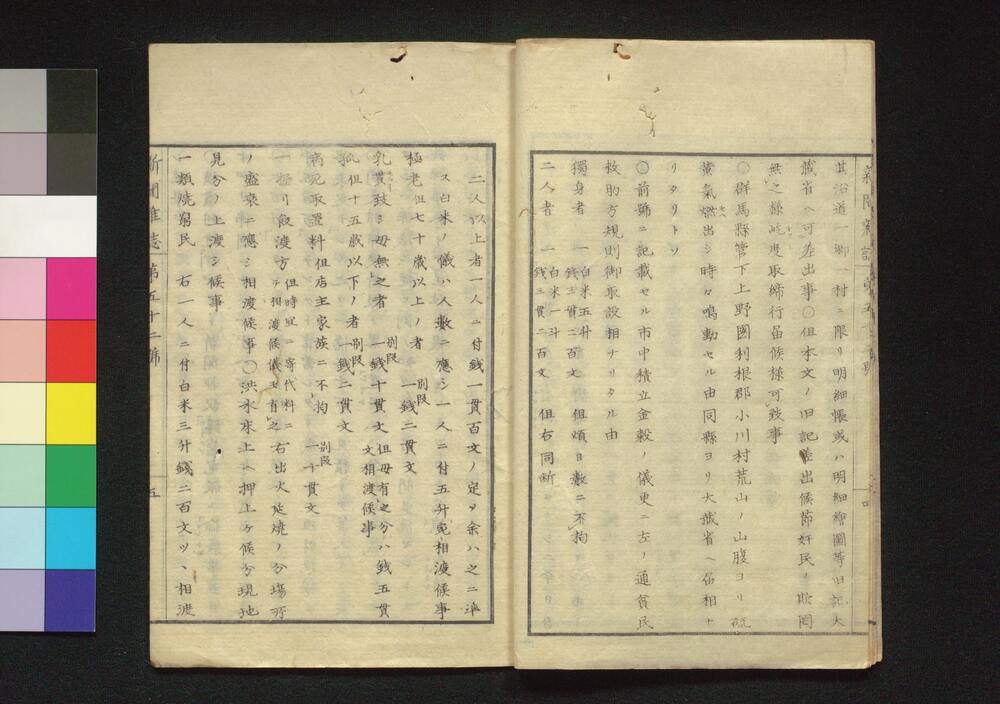 其沿道一郷一村ニ限リ明細帳或ハ明細繪圖等旧記大
藏省ヘ可差出事〇但本文ノ旧記差出候節奸民ノ欺罔
無之様屹度取締行届候様可致事
〇群馬縣管下上野國利根郡小川村荒山ノ山腹ヨリ硫
黄氣燃出シ時々鳴動セル由同縣ヨリ大藏省ヘ届相ナ
リタリトソ
〇前號ニ記載セル市中積立金穀ノ儀更ニ左ノ通貧民
救助方規則御取設相ナリタル由
獨身者 一白米五升 錢三貫二百文 但煩日數ニ不拘
二人者 一白米一斗 錢三貫二百文 但右同断
二人以上者一人ニ付錢一貫百文ノ定ヲ余ハ之ニ準
ス白米ノ儀ハ人數ニ應シ一人ニ付五升宛相渡候事
極老但七十歳以上ノ者 別段一錢二貫文
乳貰致シ母無之者 別段一錢十貫文 但母有之分ハ錢五貫文相渡候事
孤但十五歳以下ノ者 別段一錢二貫文
病死取置料但店主家族ニ不拘 別段一十貫文
一極リ飯渡方 但時宜ニ寄代料ニテ相渡候儀モ有之 右出火延焼ノ分場所
ノ盛衰ニ應シ相渡候事〇洪水床上ヘ押上ケ候分現地
見分ノ上渡シ候事
一類焼窮民 右一人ニ付白米三升錢二百文ツヽ相渡
新聞雑誌 第五十二號 五